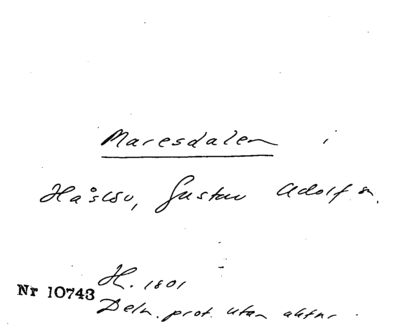 Maresdalen i
Håslöv, Gustav Adolf sn.
H. 1801
Nr 10743
Deln. prot. utan aktnr.